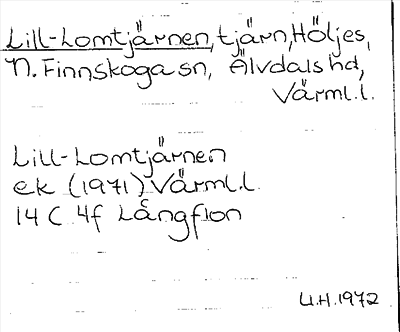 Lill-Lomtjärnen, tjärn, Höljes,
N. Finnskoga sn, Älvdals hd,
Värml.l.
Lill-Lomtjärnen
ek (1971) Värml.l
14 C 4f Långflon
U.H. 1972